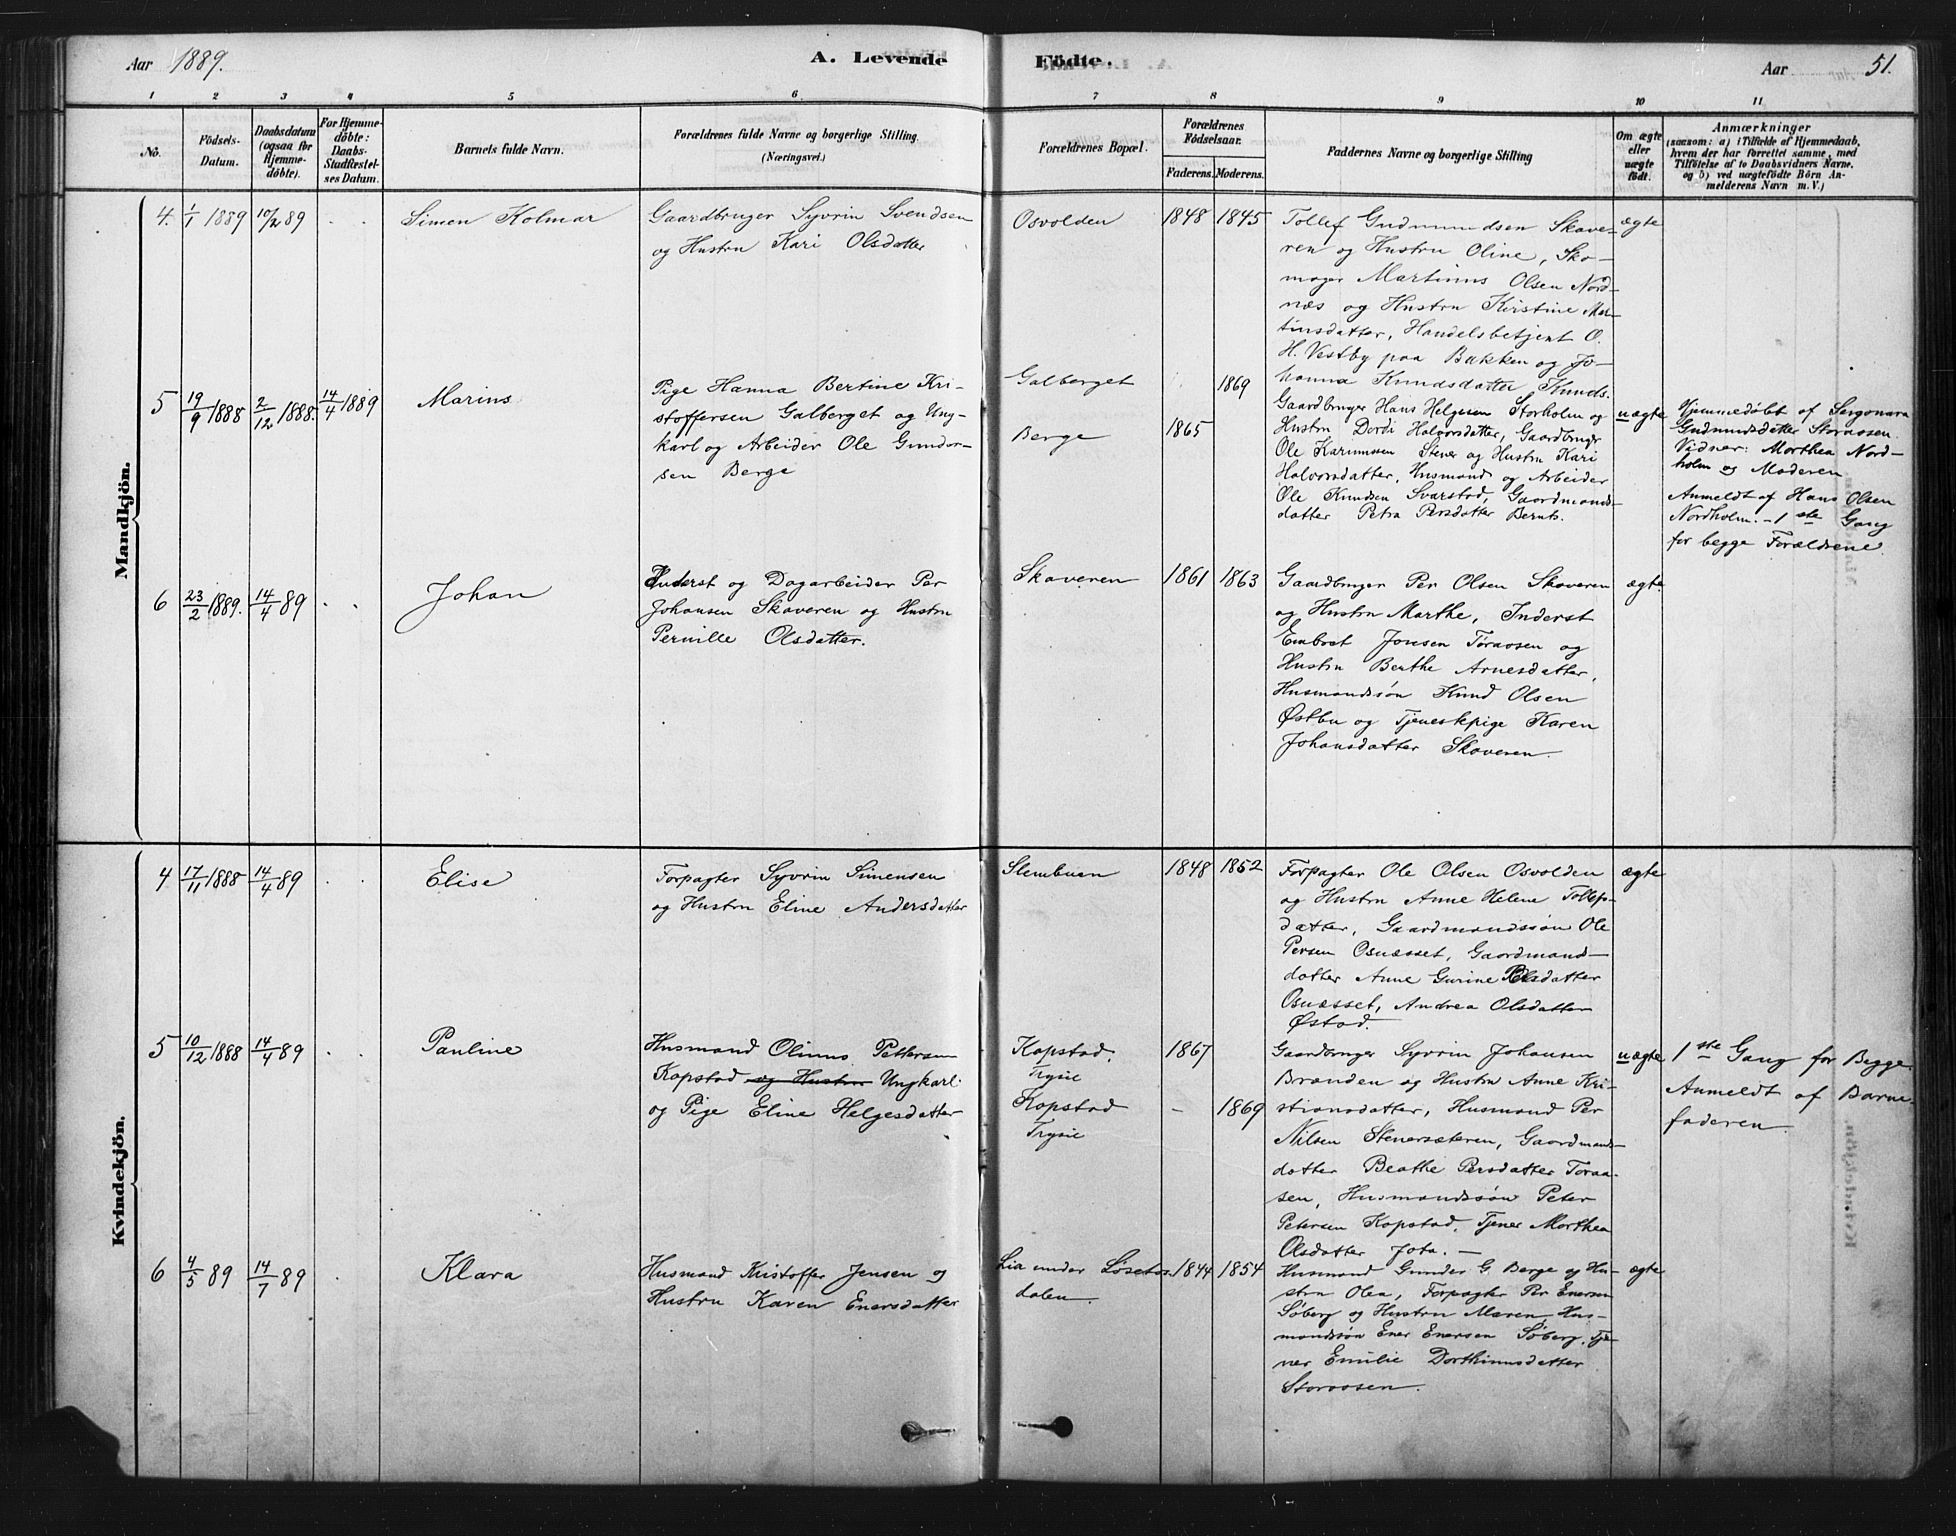 Aar 1889.
A. Levende
Födte.
Aar 51.
1 2 3 4 5 6 7 8 9 10 11
No.
Födsels-Datum.
Daabsdatum (ogsaa for Hjemme-döbte).
For Hjemme-döbte: Daabs-Stadfæstel-ses Datum.
Barnets fulde Navn.
Forældrenes fulde Navne og borgerlige Stilling.
(Næringsvei.)
Forældrenes Bopæl.
Forældrenes Födselsaar.
Faderens. Moderens.
Faddernes Navne og borgerlige Stilling
Om ægte eller uægte födt.
Anmærkninger
(saasom: a) i Tilfælde af Hjemmedaab,
hvem der har forrettet samme, med
Tilföielse af to Daabsvidners Navne,
og b) ved uægtefödte Börn An-
melderens Navn m. V.)
Mandkjön.
4. 1/1 1889 10/2 89 . . Simen Kolmar
Gaardbruger Syvrin Svendsen
og Hustru Kari Olsdatter
Osvolden 1848 1845
Tollef Gudmundsen Skave-
ren og Hustru Oline, Sko-
mager Martinus Olsen Nord-
næs og Hustru Kristine Mar-
tinsdatter, Handelsbetjent O.
H. Vestby paa Bakken og Jo-
hanna Knudsdatter Knuds.
ægte
5 19/9 1888 2/12 1888. 14/4 1889 Marius
Pige Hanna Bertine Kri-
stoffersen Galberget og Ung-
karl og Arbeider Ole Gundor-
sen Berge
Galberget 1869
Berge 1865
Gaardbruger Hans Helgesen Storholm og
Hustru Dordi Halvorsdatter, Gaardbruger
Ole Karinussen Stener og Hustru Kari
Halvorsdatter, Husmand og Arbeider
Ole Knudsen Svarstad, Gaardmands-
datter Petra Persdatter Bernts.
uægte
Hjemmedøbt af Sergonara
Gudmundsdatter Storaasen.
Vidner: Morthea Nord-
holm og Moderen
Anmeldt af Hans Olsen
Nordholm. - 1ste Gang
for begge Forældrene
6 23/2 1889. 14/4 89 . . Johan
Inderst og Dagarbeider Per
Johansen Skaveren og Hustru
Pernille Olsdatter.
Skaveren 1861 1863
Gaardbruger Per Olsen Skaveren
og Hustru Marthe, Inderst
Embret Jonsen Toraasen og
Hustru Berthe Arnesdatter,
Husmandssøn Knud Olsen
Østbu og Tjenestpige Karen
Johansdatter Skaveren.
ægte
Kvindekjön.
4 17/11 1888 14/4 89 . . Elise
Forpagter Syvrin Simensen
og Hustru Eline Andersdatter
Stembuen 1848 1852
Forpagter Ole Olsen Osvolden
og Hustru Anne Helene Tollefs-
datter, Gaardmandssøn Ole
Persen Osnæsset, Gaardmands-
datter Anne Gurine Olsdatter
Osnæsset, Andrea Olsdatter
Østad.
ægte
5 10/12 1888 14/4 89 . . Pauline
Husmand Olinus Pettersen
Kopstad og Hustru Ungkarl
og Pige Eline Helgesdatter
Kopstad, 1867
Trysil
Kopstad - 1869
Trysil
Gaardbruger Syvrin Johansen
Brænden og Hustru Anne Kri-
stiansdatter, Husmand Per
Nilsen Stenersæteren, Gaardmands-
datter Beathe Persdatter Toraa-
sen, Husmandssøn Peter
Petersen Kopstad, Tjener Morthea
Olsdatter Jota. -
uægte
1ste Gang for Begge.
Anmeldt af Barne-
faderen.
6 4/5 89 14/7 89 . Klara
Husmand Kristoffer Jensen og
Hustru Karen Enersdatter
Lia under Løseto- 1844 1854
dalen.
Husmand Gunder G. Berge og Hu-
stru Olea, Forpagter Per Enersen
Søberg og Hustru Maren, Hus-
mandssøn Ener Enersen Søberg, Tje-
ner Emilie Dorthinusdatter
Storaasen.
ægte